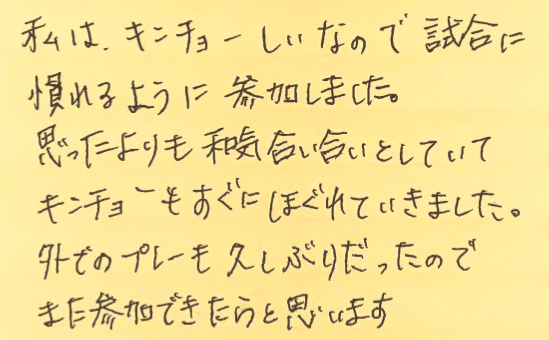 私は、キンチョーしいなので試合に
慣れるように参加しました。
思ったよりも和気合い合いとしていて
キンチョーもすぐにほぐれていきました。
外でのプレーも久しぶりだったので
また参加できたらと思います